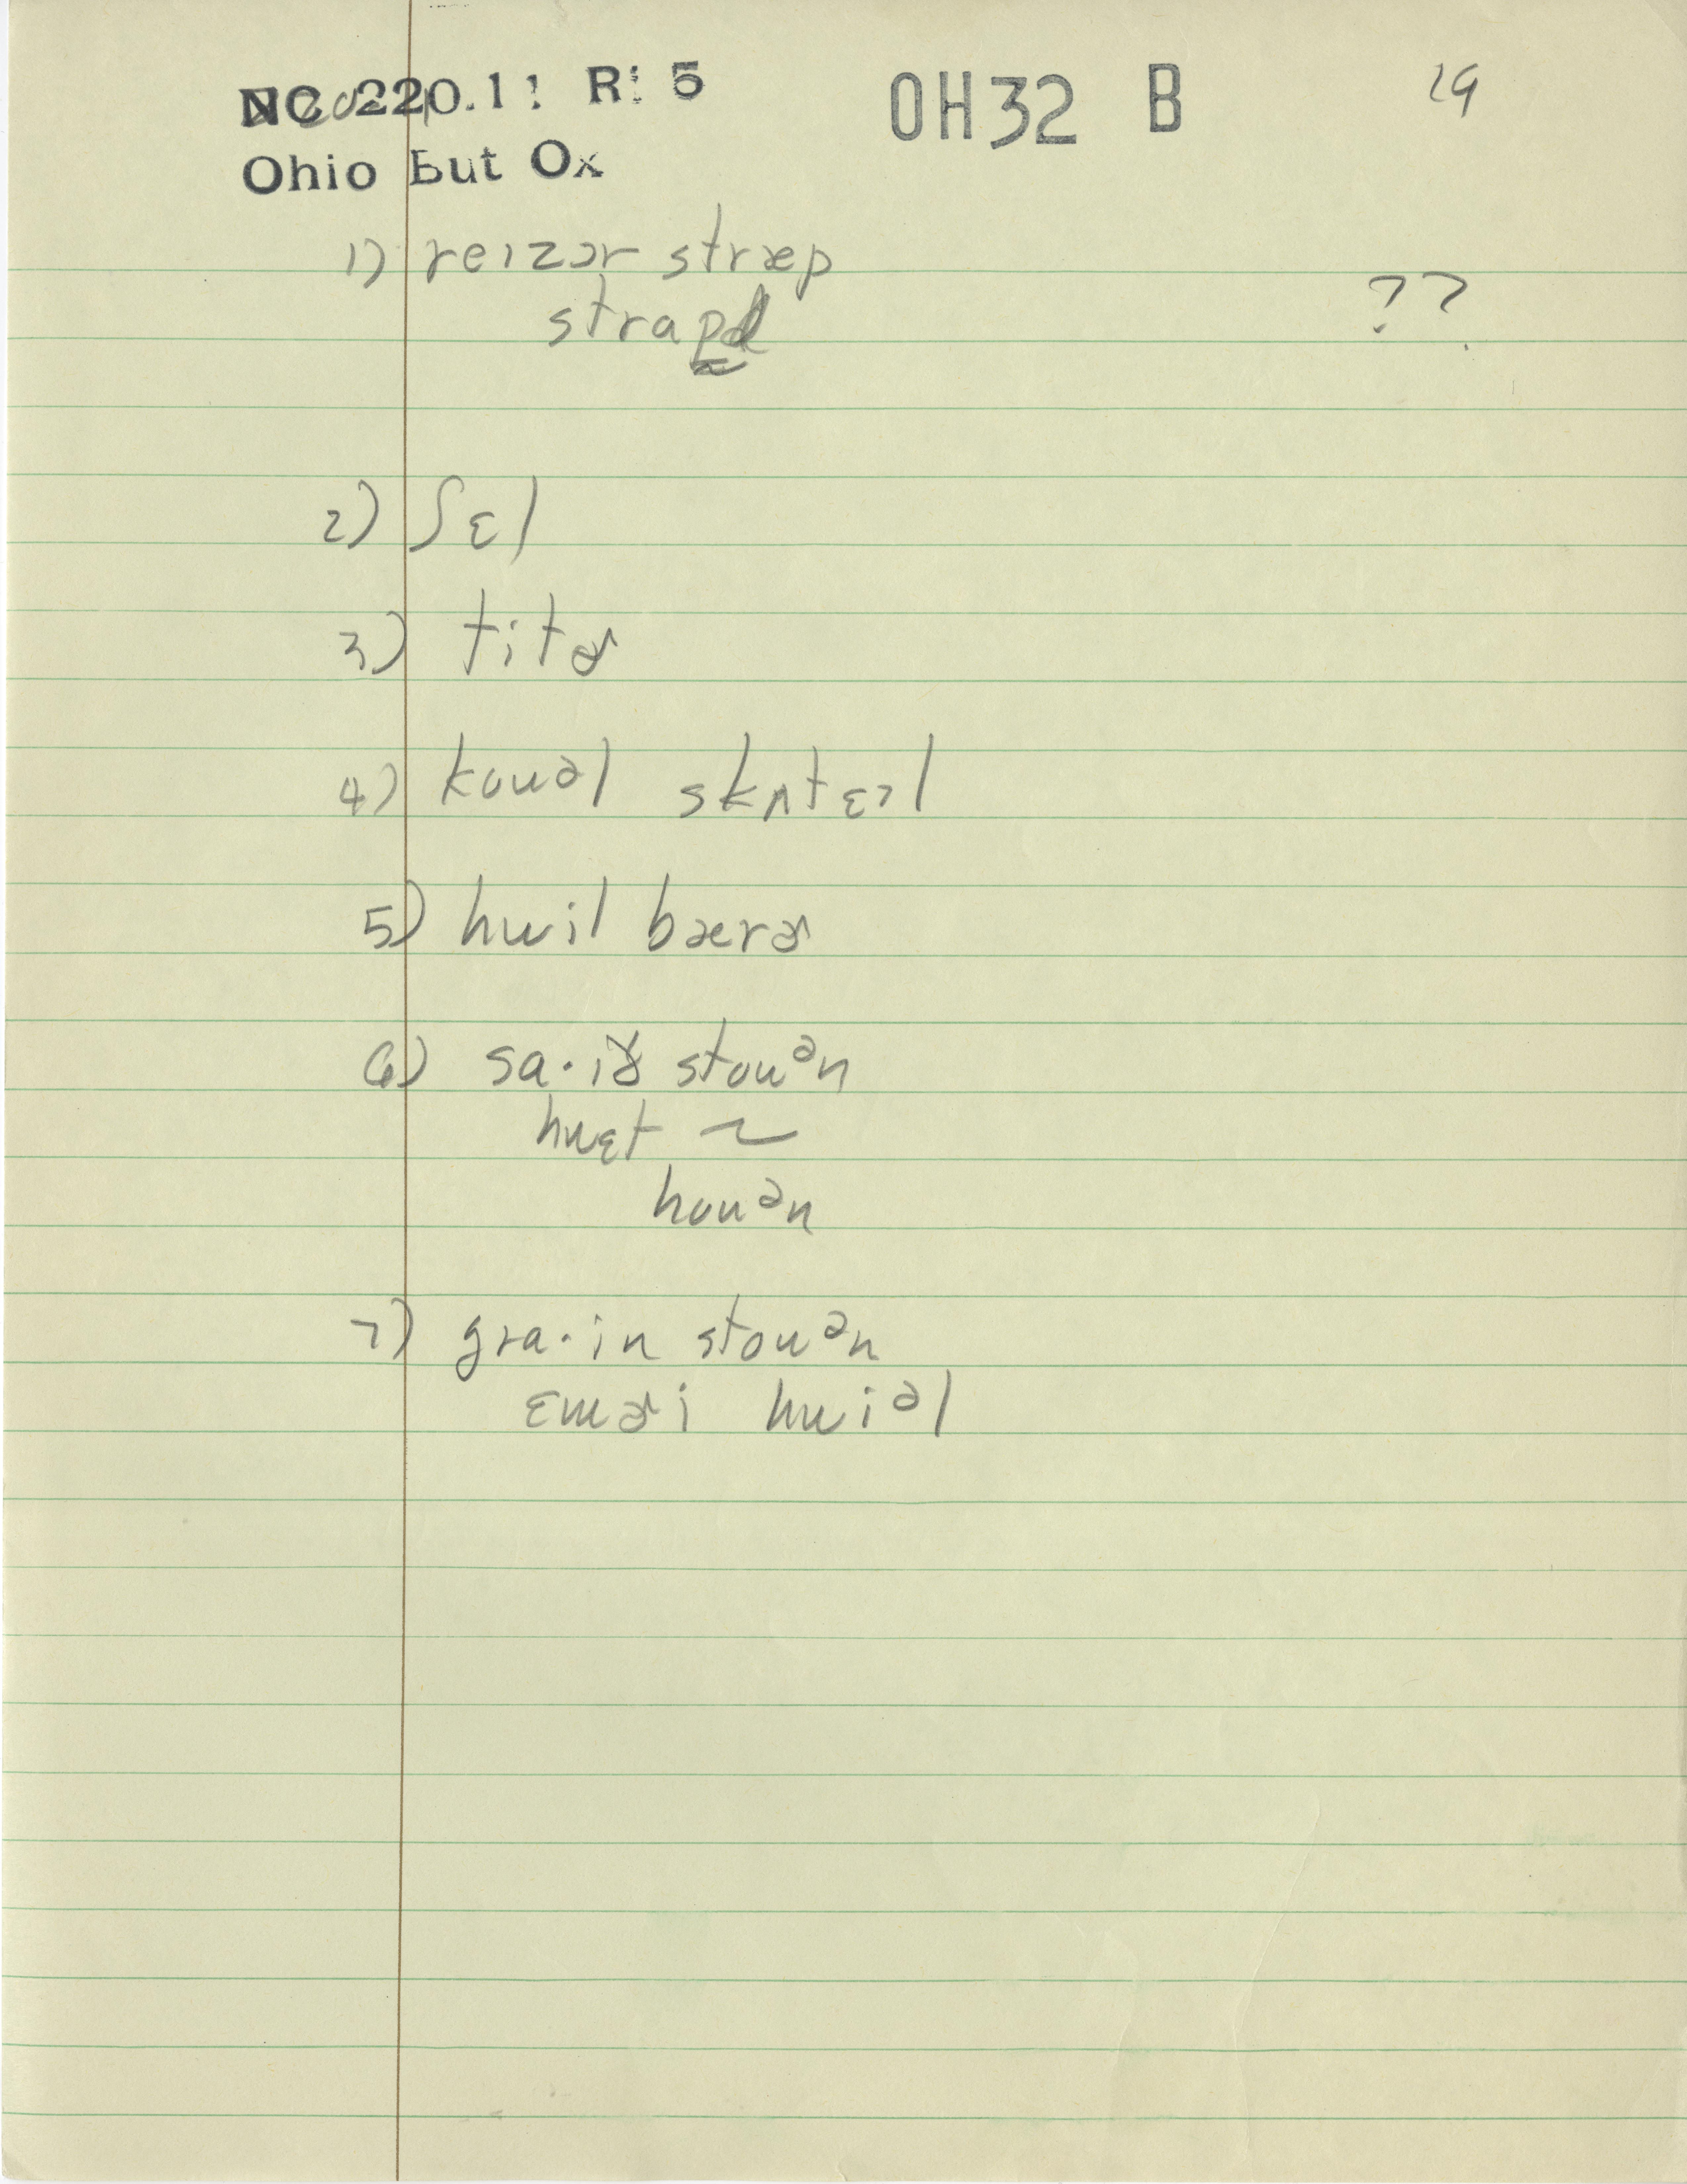 NC 220.1! R! 5 OH32 B 19
Ohio But Ox
1) reɪzər stræp
strapd ??
2) ʃɛl
3) titɚ
4) kouəl skʌtɛɪl
5) hwil bærɚ
6) sa·ɪð stouᵊn
hwɛt ~
houᵊn
7) gra·in stouᵊn
ɛmɚi hwiᵊl